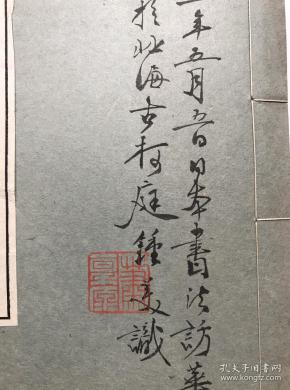 年五月五日日本書法訪華
於北海古柯庭鍾美識
孔夫子旧书网